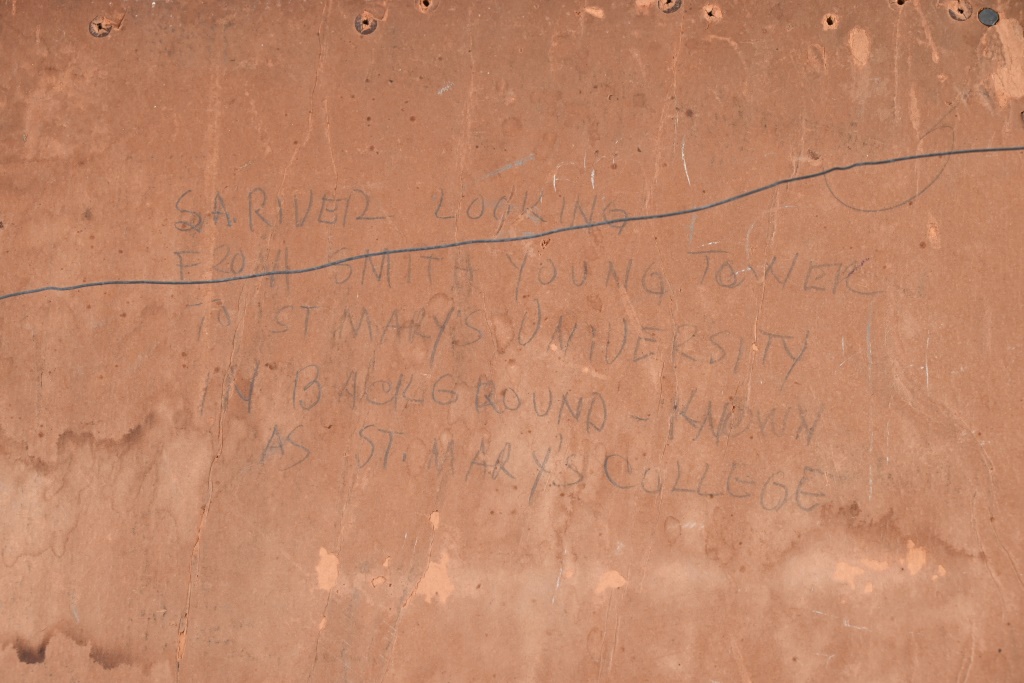 S.A. RIVER LOOKING
FROM SMITH YOUNG TOWER
TO ST MARY'S UNIVERSITY
IN BACKGROUND - KNOWN
AS ST. MARY'S COLLEGE